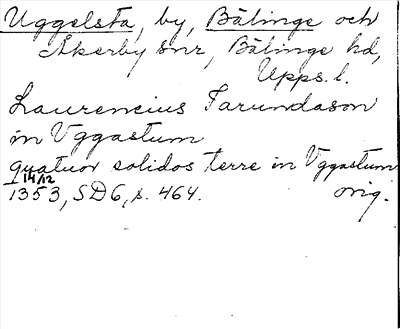 Uggelsta, by, Bälinge och
Åkerby snr, Bälinge hd,
Upps. l.
Laurencius Tarundason
in Vggastum
quatuor solidos terre in Vggastum
14/12
1353, SD6, s. 464. orig.